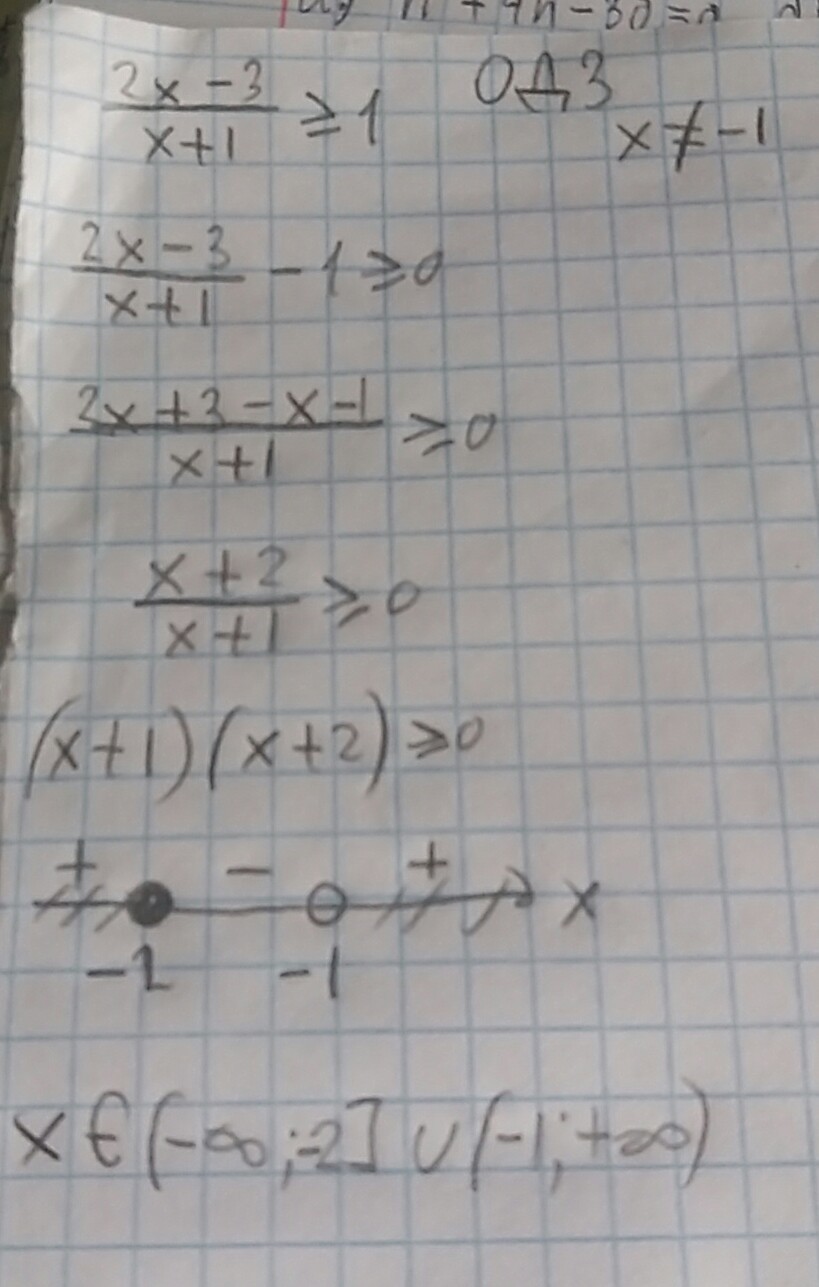 (2x-3)/(x+1) ≥ 1 ОДЗ
x ≠ -1
(2x-3)/(x+1) - 1 ≥ 0
(2x+3-x-1)/(x+1) ≥ 0
(x+2)/(x+1) ≥ 0
(x+1)(x+2) ≥ 0
+ - + x
-2 -1
x ∈ (-∞; -2] ∪ (-1; +∞)